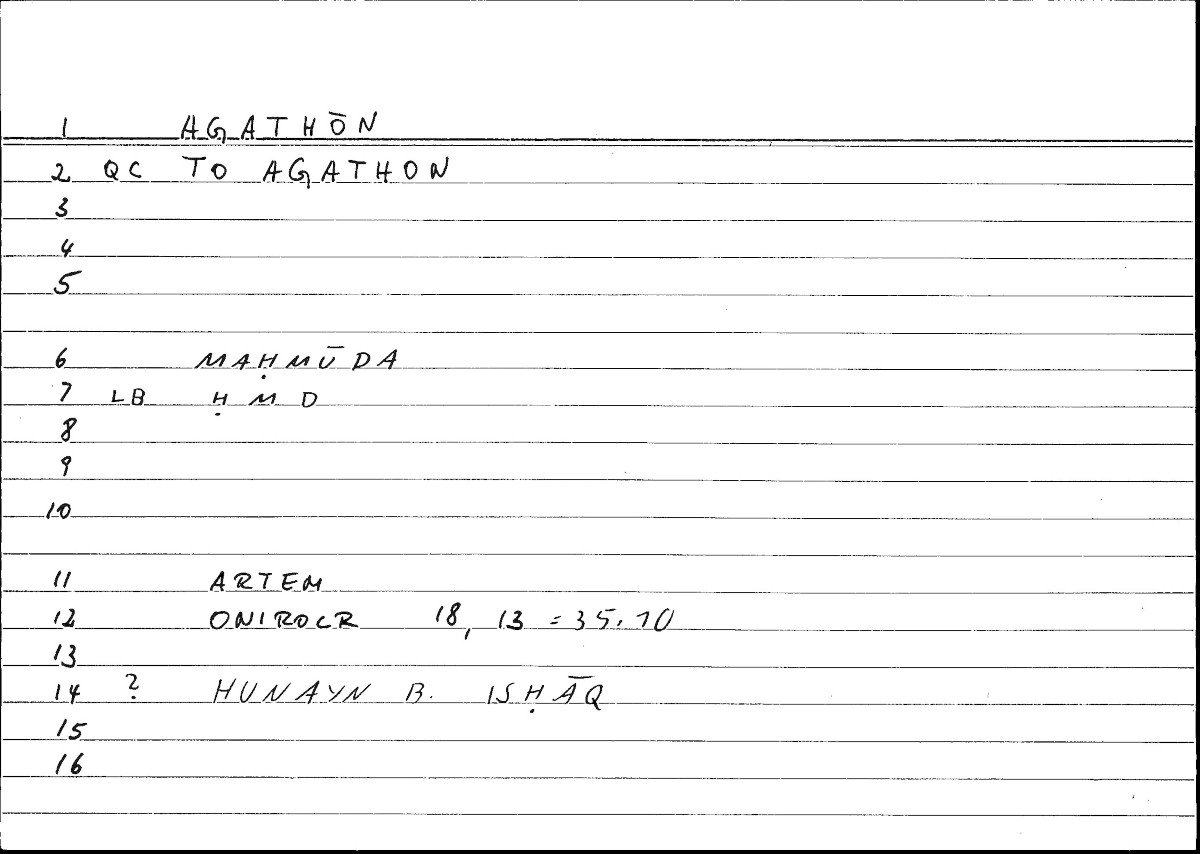 1 AGATHŌN
2 QC TO AGATHON
3
4
5
6 MAḤMŪDA
7 LB ḤMD
8
9
10
11 ARTEM
12 ONIROCR 18, 13 = 35.10
13
14 ? HUNAYN B. ISḤĀQ
15
16